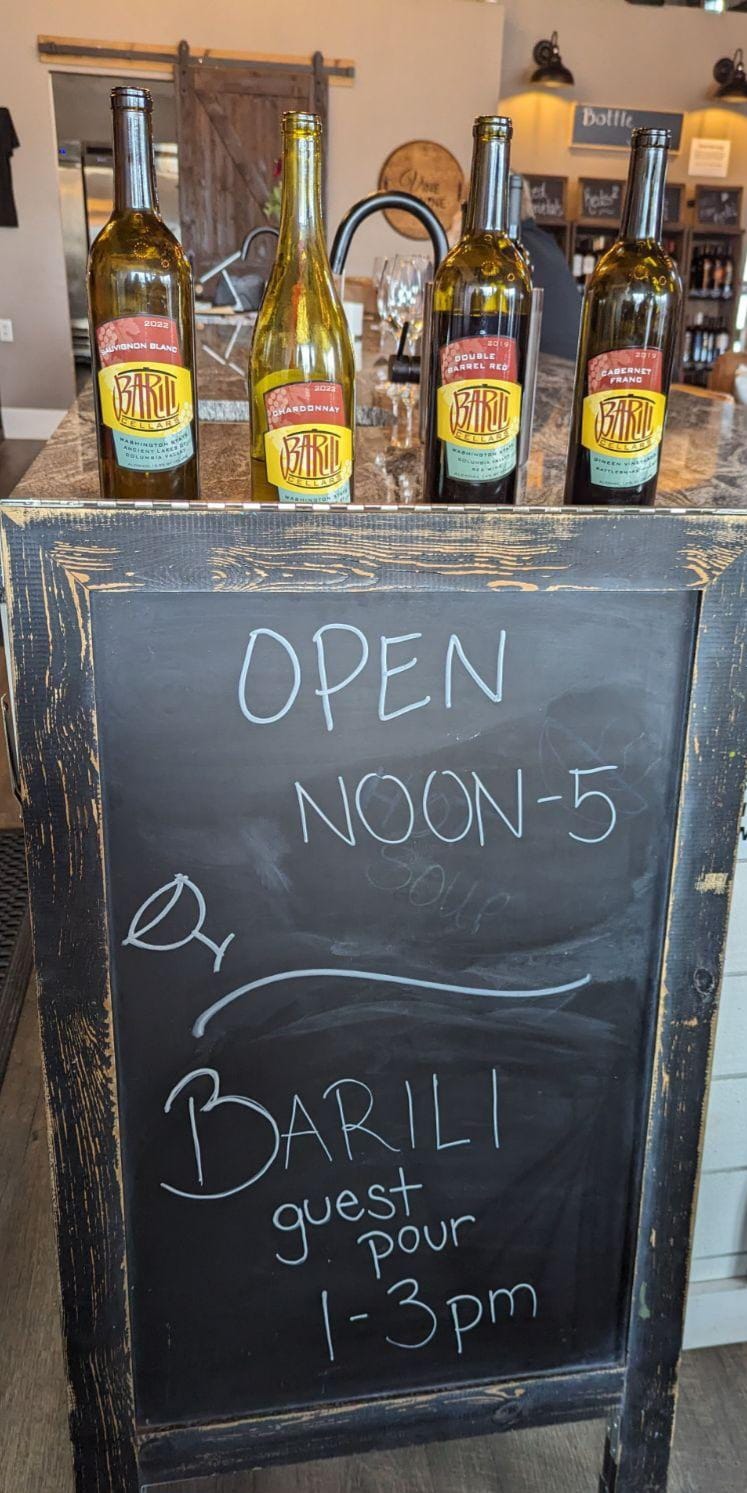 Bottle
VINE
2022
SAUVIGNON BLANC
BARILI
CELLARS
WASHINGTON STATE
ANCIENT LAKES OF
COLUMBIA VALLEY
2022
CHARDONNAY
BARILI
CELLARS
WASHINGTON STATE
2019
DOUBLE
BARREL RED
BARILI
CELLARS
WASHINGTON STATE
COLUMBIA VALLEY
RED WINE
2019
CABERNET
FRANC
BARILI
CELLARS
DINEEN VINEYARDS
OPEN
NOON-5
SOUP
BARILI
guest
pour
1-3pm